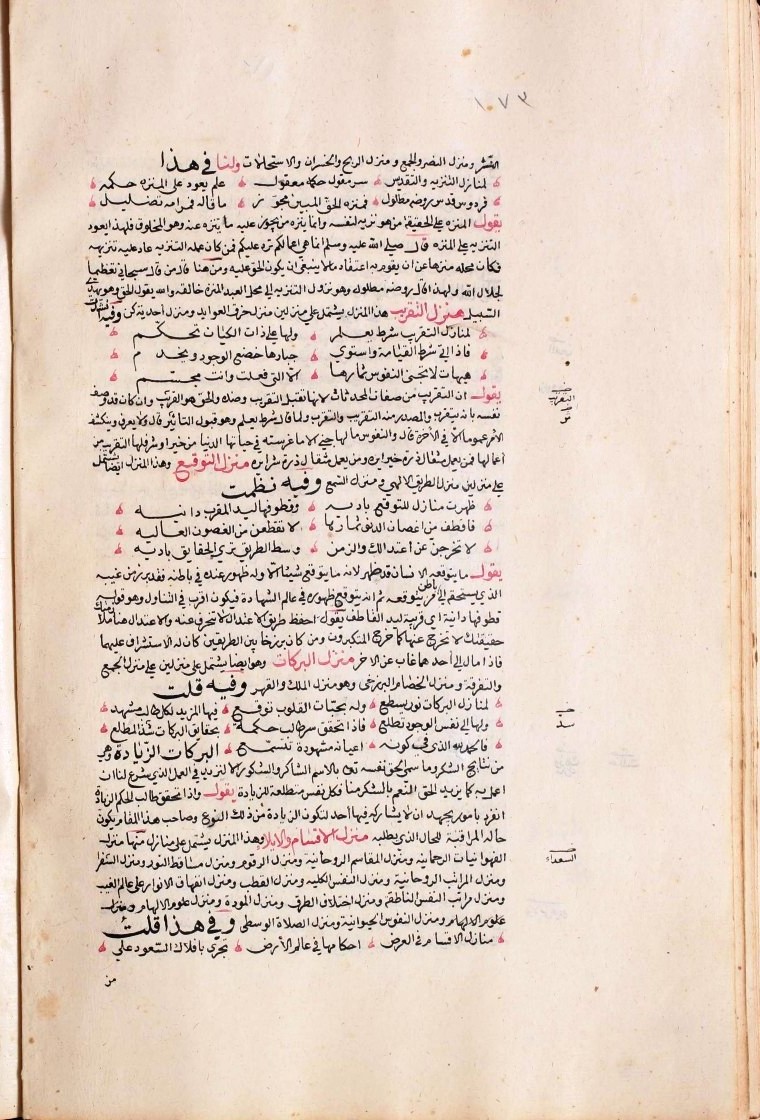 ١٧٣
القشر ومنزل النصر والجمع ومنزل الربح والخسران والاستحالات ولنا في هذا
لمنازل التنزيه والتقديس سر مقول حكمه معقول علم يعود على المنزه حكمه
فردوس قدس روضه مطلول فمنزه الحق المبين مجوز ما قاله فمرامه تضليل
يقول المنزه على الحقيقة من هو نزيه لنفسه وانما ينزه من يجوز عليه ما ينزه عنه وهو المخلوق فلهذا يعود
التنزيه على المنزه قال صلى الله عليه وسلم انما هي اعمالكم ترد عليكم فمن كان عمله التنزيه عاد عليه تنزيهه
فكان محله منزها عن ان يقوم به اعتقاد ما لا ينبغي ان يكون الحق عليه ومن هنا قال من قال سبحاني تعظيما
لجلال الله ولهذا قال روضه مطلول وهو نزول التنزيه الى محل العبد المنزه خالقه والله يقول الحق وهو يهدي
السبيل منزل التقريب هذا المنزل يشتمل على منزلين منزل خرق العوايد ومنزل احدية كن وفيه انشدت
لمنازل التقريب شرط يعلم ولها على ذات الكيان تحكم
فاذا اتى شرط القيامة واستوى جبارها خضع الوجود ويخدم
هيهات لا تجني النفوس ثمارها الا التي فعلت وانت مجسم
يقول ان التقريب من صفات المحدثات لانها تقبل التقريب وضده والحق هو القريب وان كان قد وصف
نفسه بانه يتقرب والمصدر منه التقريب والتقرب ولما قال شرط يعلم وهو قبول التاثير قال ولا يعرف وينكشف
الامر عموما الا في الآخرة قال والنفوس ما لها جنى الا ما غرسته في حياتها الدنيا من خير او شر فلها التقريب من
اعمالها فمن يعمل مثقال ذرة خيرا يره ومن يعمل مثقال ذرة شرا يره منزل التوقيع وهذا المنزل ايضا يشتمل
على منزلين منزل الطريق الالهي ومنزل السمع وفيه نظمت
ظهرت منازل للتوقع باديه وقطوفها ليد المقرب دانيه
فاقطف من اغصان الدنو ثمارها لا تقطفن من الغصون العاليه
لا تخرجن عن اعتدالك والزمن وسط الطريق ترى الحقايق باديه
يقول ما يتوقعه الانسان قد ظهر لانه ما يتوقع شيئا الا وله ظهور عنده في باطنه فقد برز من غيبه
الذي يستحقه الى باطن من يتوقعه ثم انه يتوقع ظهوره في عالم الشهادة فيكون اقرب في التناول وهو قوله
قطوفها دانية اي قريبة ليد القاطف يقول احفظ طريق الاعتدال لا تنحرف عنه والاعتدال هنا ملازمتك
حقيقتك لا تخرج عنها كما خرج المتكبرون ومن كان برزخا بين الطريقين كان له الاستشراف عليهما
فاذا مال الى احدهما غاب عن الاخر منزل البركات وهو ايضا يشتمل على منزلين على منزل الجمع
والتفرقة ومنزل الخصام البرزخي وهو منزل الملك والقهر وفيه قلت
لمنازل البركات نور يسطع وله بحبات القلوب توقع فيها المزيد لكل طالب مشهد
ولها الى نفس الوجود تطلع فاذا تحقق سر طالب حكمة بحقايق البركات شد المطلع
فالحمد لله الذي في كونه اعيانه مشهودة تتسمع البركات الزيادة وهي
من نتايج الشكر وما سمى الحق نفسه تعالى بالاسم الشاكر والشكور الا لنزيد في العمل الذي يشرع لنا ان
اعمل به كما يزيد الحق النعم بالشكر منا فكل نفس متطلعة للزيادة يقول واذا تحقق طالب الحكم الزيادة
انفرد بامور يجهد ان لا يشاركه فيها احد لتكون الزيادة من ذلك النوع وصاحب هذا المقام يكون
حاله المراقبة للحال الذي يطلبه منزل الاقسام والايلا وهذا المنزل يشتمل على منازل منها منزل
الفهوانيات الرحمانية ومنزل المقاسم الروحانية ومنزل الرقوم ومنزل مساقط النور ومنزل الشعرا
ومنزل المراتب الروحانية ومنزل النفس الكلية ومنزل القطب ومنزل انفهاق الانوار على عالم الغيب
ومنزل مراتب النفس الناطقة ومنزل اختلاف الطرق ومنزل المودة ومنزل علوم الالهام ومنزل
علوم الالهام ومنزل النفوس الحيوانية ومنزل الصلاة الوسطى وفي هذا قلت
منازل الاقسام في العرض احكامها في عالم الارض تجري بافلاك السعود على
من
التقريب
السعداء